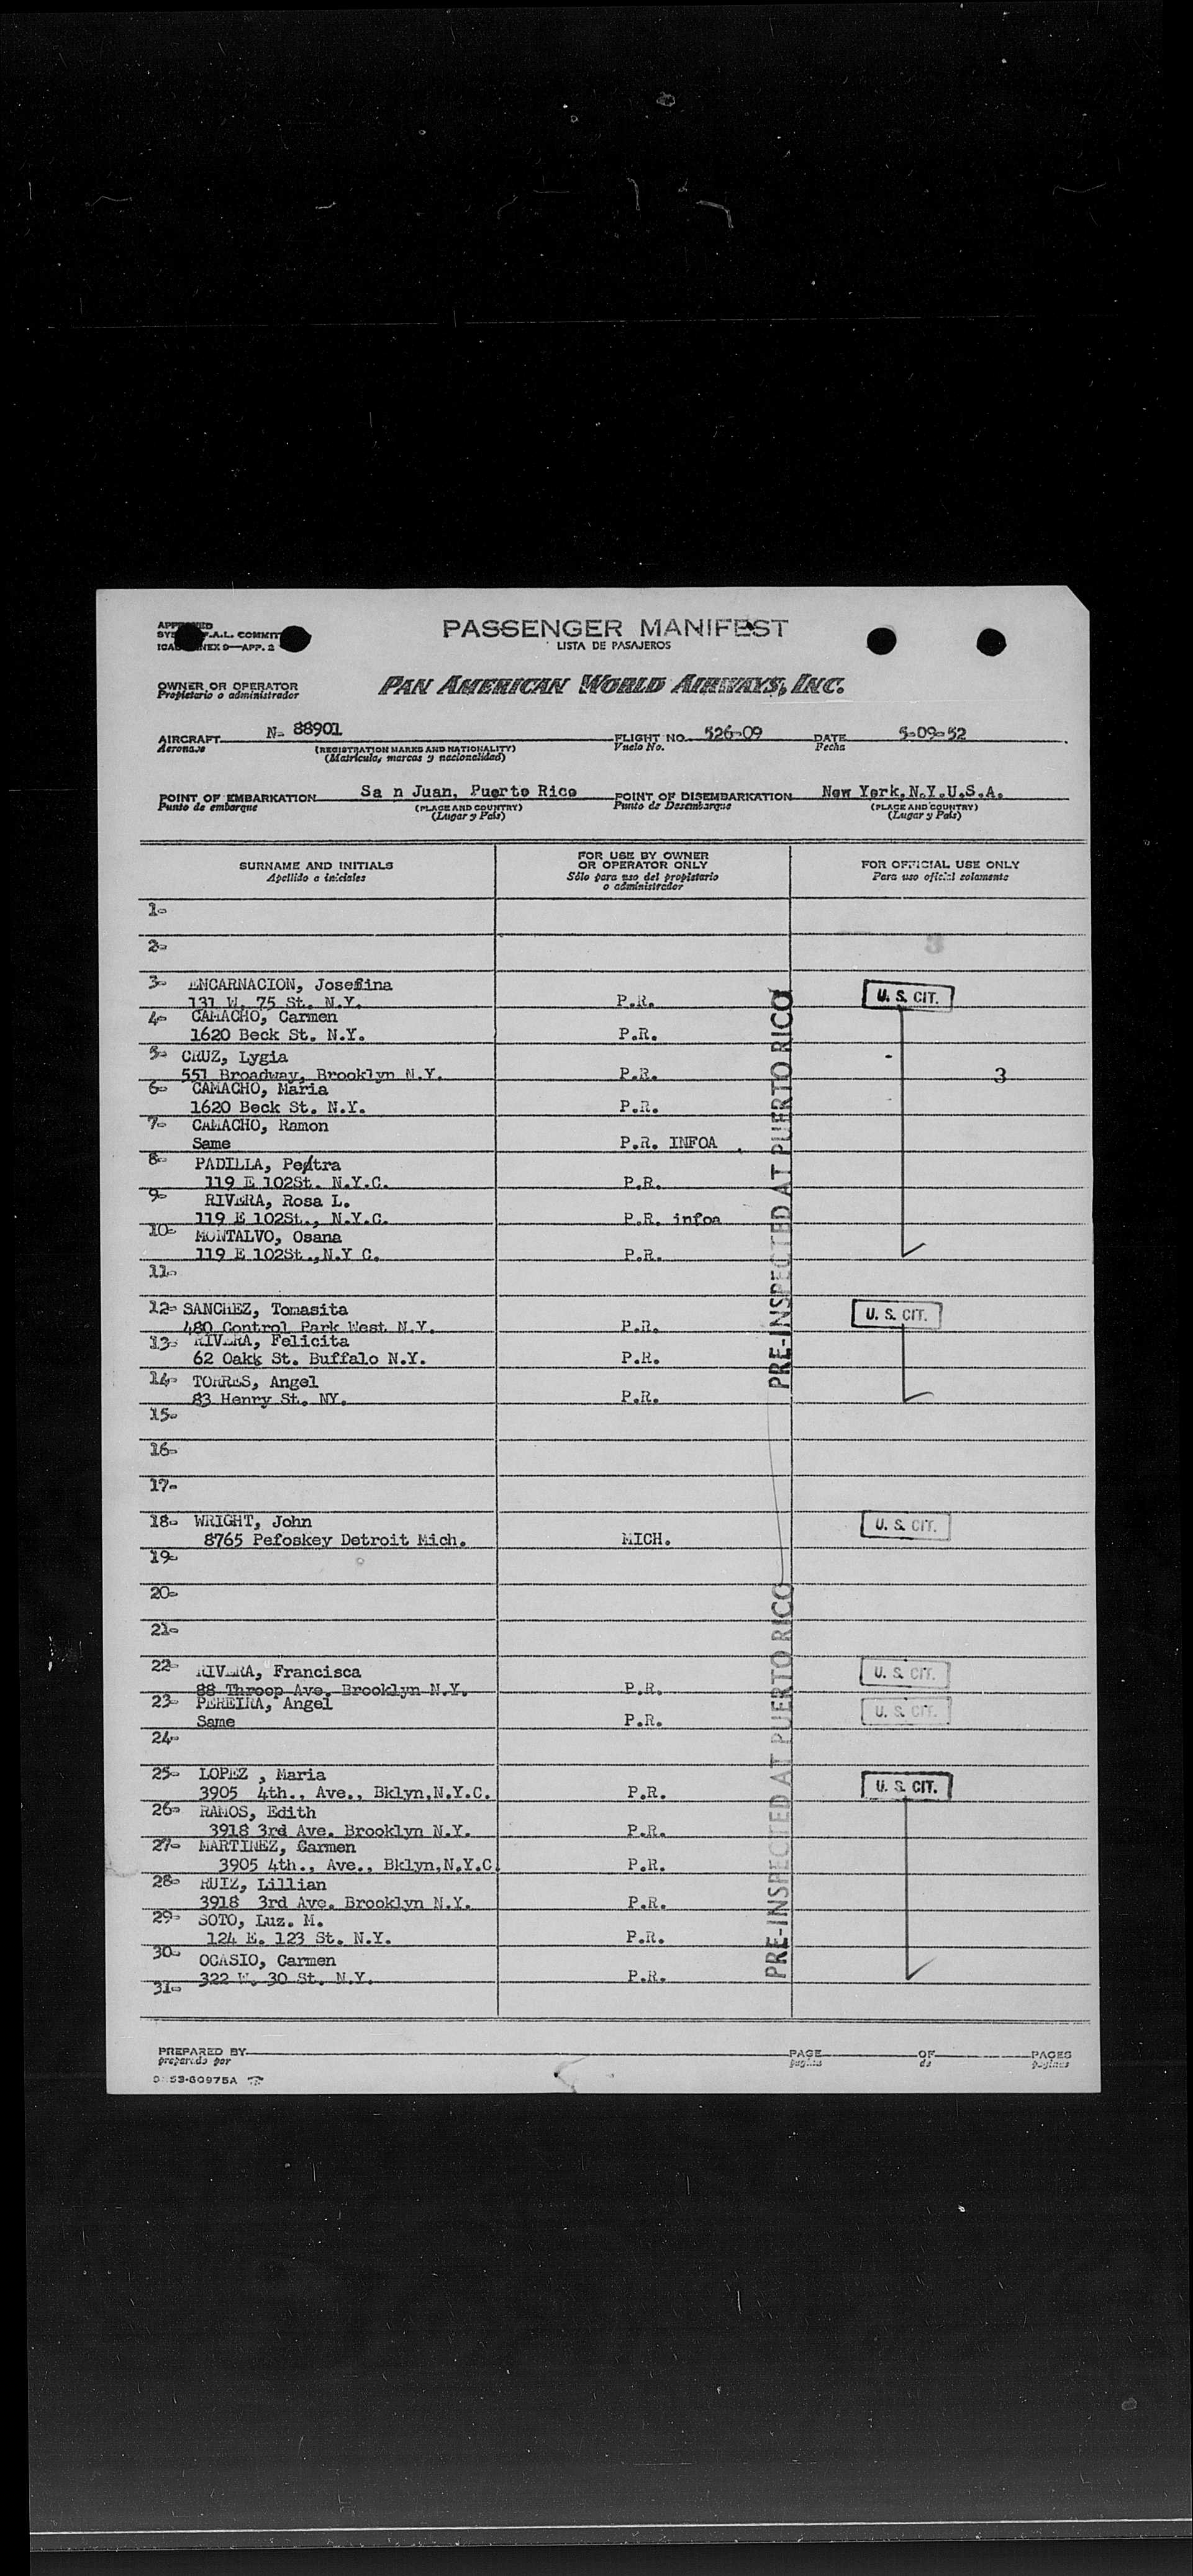 PASSENGER MANIFEST
LISTA DE PASAJEROS
F.A.L. COMMIT
9—APP. 2
OWNER OR OPERATOR
Propietario o administrador
PAN AMERICAN WORLD AIRWAYS, INC.
AIRCRAFT N- 88901 FLIGHT NO. 526-09 DATE 5-09-52
Aeronave (REGISTRATION MARKS AND NATIONALITY) Vuelo No. Fecha
(Matricula, marcas y nacionalidad)
POINT OF EMBARKATION Sa n Juan, Puerto Rico POINT OF DISEMBARKATION New York,N.Y.U.S.A.
Punto de embarque (PLACE AND COUNTRY) Punto de Desembarque (PLACE AND COUNTRY)
(Lugar y País) (Lugar y País)
SURNAME AND INITIALS FOR USE BY OWNER OR OPERATOR ONLY FOR OFFICIAL USE ONLY
Apellido a iniciales Sólo para uso del propietario o administrador Para uso oficial solamente
1-
2- 3
3- ENCARNACION, Josefina
131 W. 75 St. N.Y. P.R. U. S. CIT.
4- CAMACHO, Carmen
1620 Beck St. N.Y. P.R.
5- CRUZ, Lygia
551 Broadway, Brooklyn N.Y. P.R. 3
6- CAMACHO, Maria
1620 Beck St. N.Y. P.R.
7- CAMACHO, Ramon
Same P.R. INFOA
8- PADILLA, Petra
119 E 102St. N.Y.C. P.R.
9- RIVERA, Rosa L.
119 E 102St., N.Y.C. P.R. infoa
10- MONTALVO, Osana
119 E 102St.,N.Y C. P.R.
11-
12- SANCHEZ, Tomasita
480 Central Park West N.Y. P.R. U. S. CIT.
13- RIVERA, Felicita
62 Oakk St. Buffalo N.Y. P.R.
14- TORRES, Angel
83 Henry St. NY. P.R.
PRE-INSPECTED AT PUERTO RICO
15-
16-
17-
18- WRIGHT, John U. S. CIT.
8765 Pefoskey Detroit Mich. MICH.
19-
20-
21-
22- RIVERA, Francisca U. S. CIT.
88 Throop Ave. Brooklyn N.Y. P.R.
23- PEREIRA, Angel U. S. CIT.
Same P.R.
24-
25- LOPEZ , Maria U. S. CIT.
3905 4th., Ave., Bklyn,N.Y.C. P.R.
26- RAMOS, Edith
3918 3rd Ave. Brooklyn N.Y. P.R.
27- MARTINEZ, Carmen
3905 4th., Ave., Bklyn,N.Y.C. P.R.
28- RUIZ, Lillian
3918 3rd Ave. Brooklyn N.Y. P.R.
29- SOTO, Luz. M.
124 E. 123 St. N.Y. P.R.
30- OCASIO, Carmen
322 W. 30 St. N.Y. P.R.
PRE-INSPECTED AT PUERTO RICO
31-
PREPARED BY PAGE OF PAGES
preparado por pagina de paginas
53-60975A